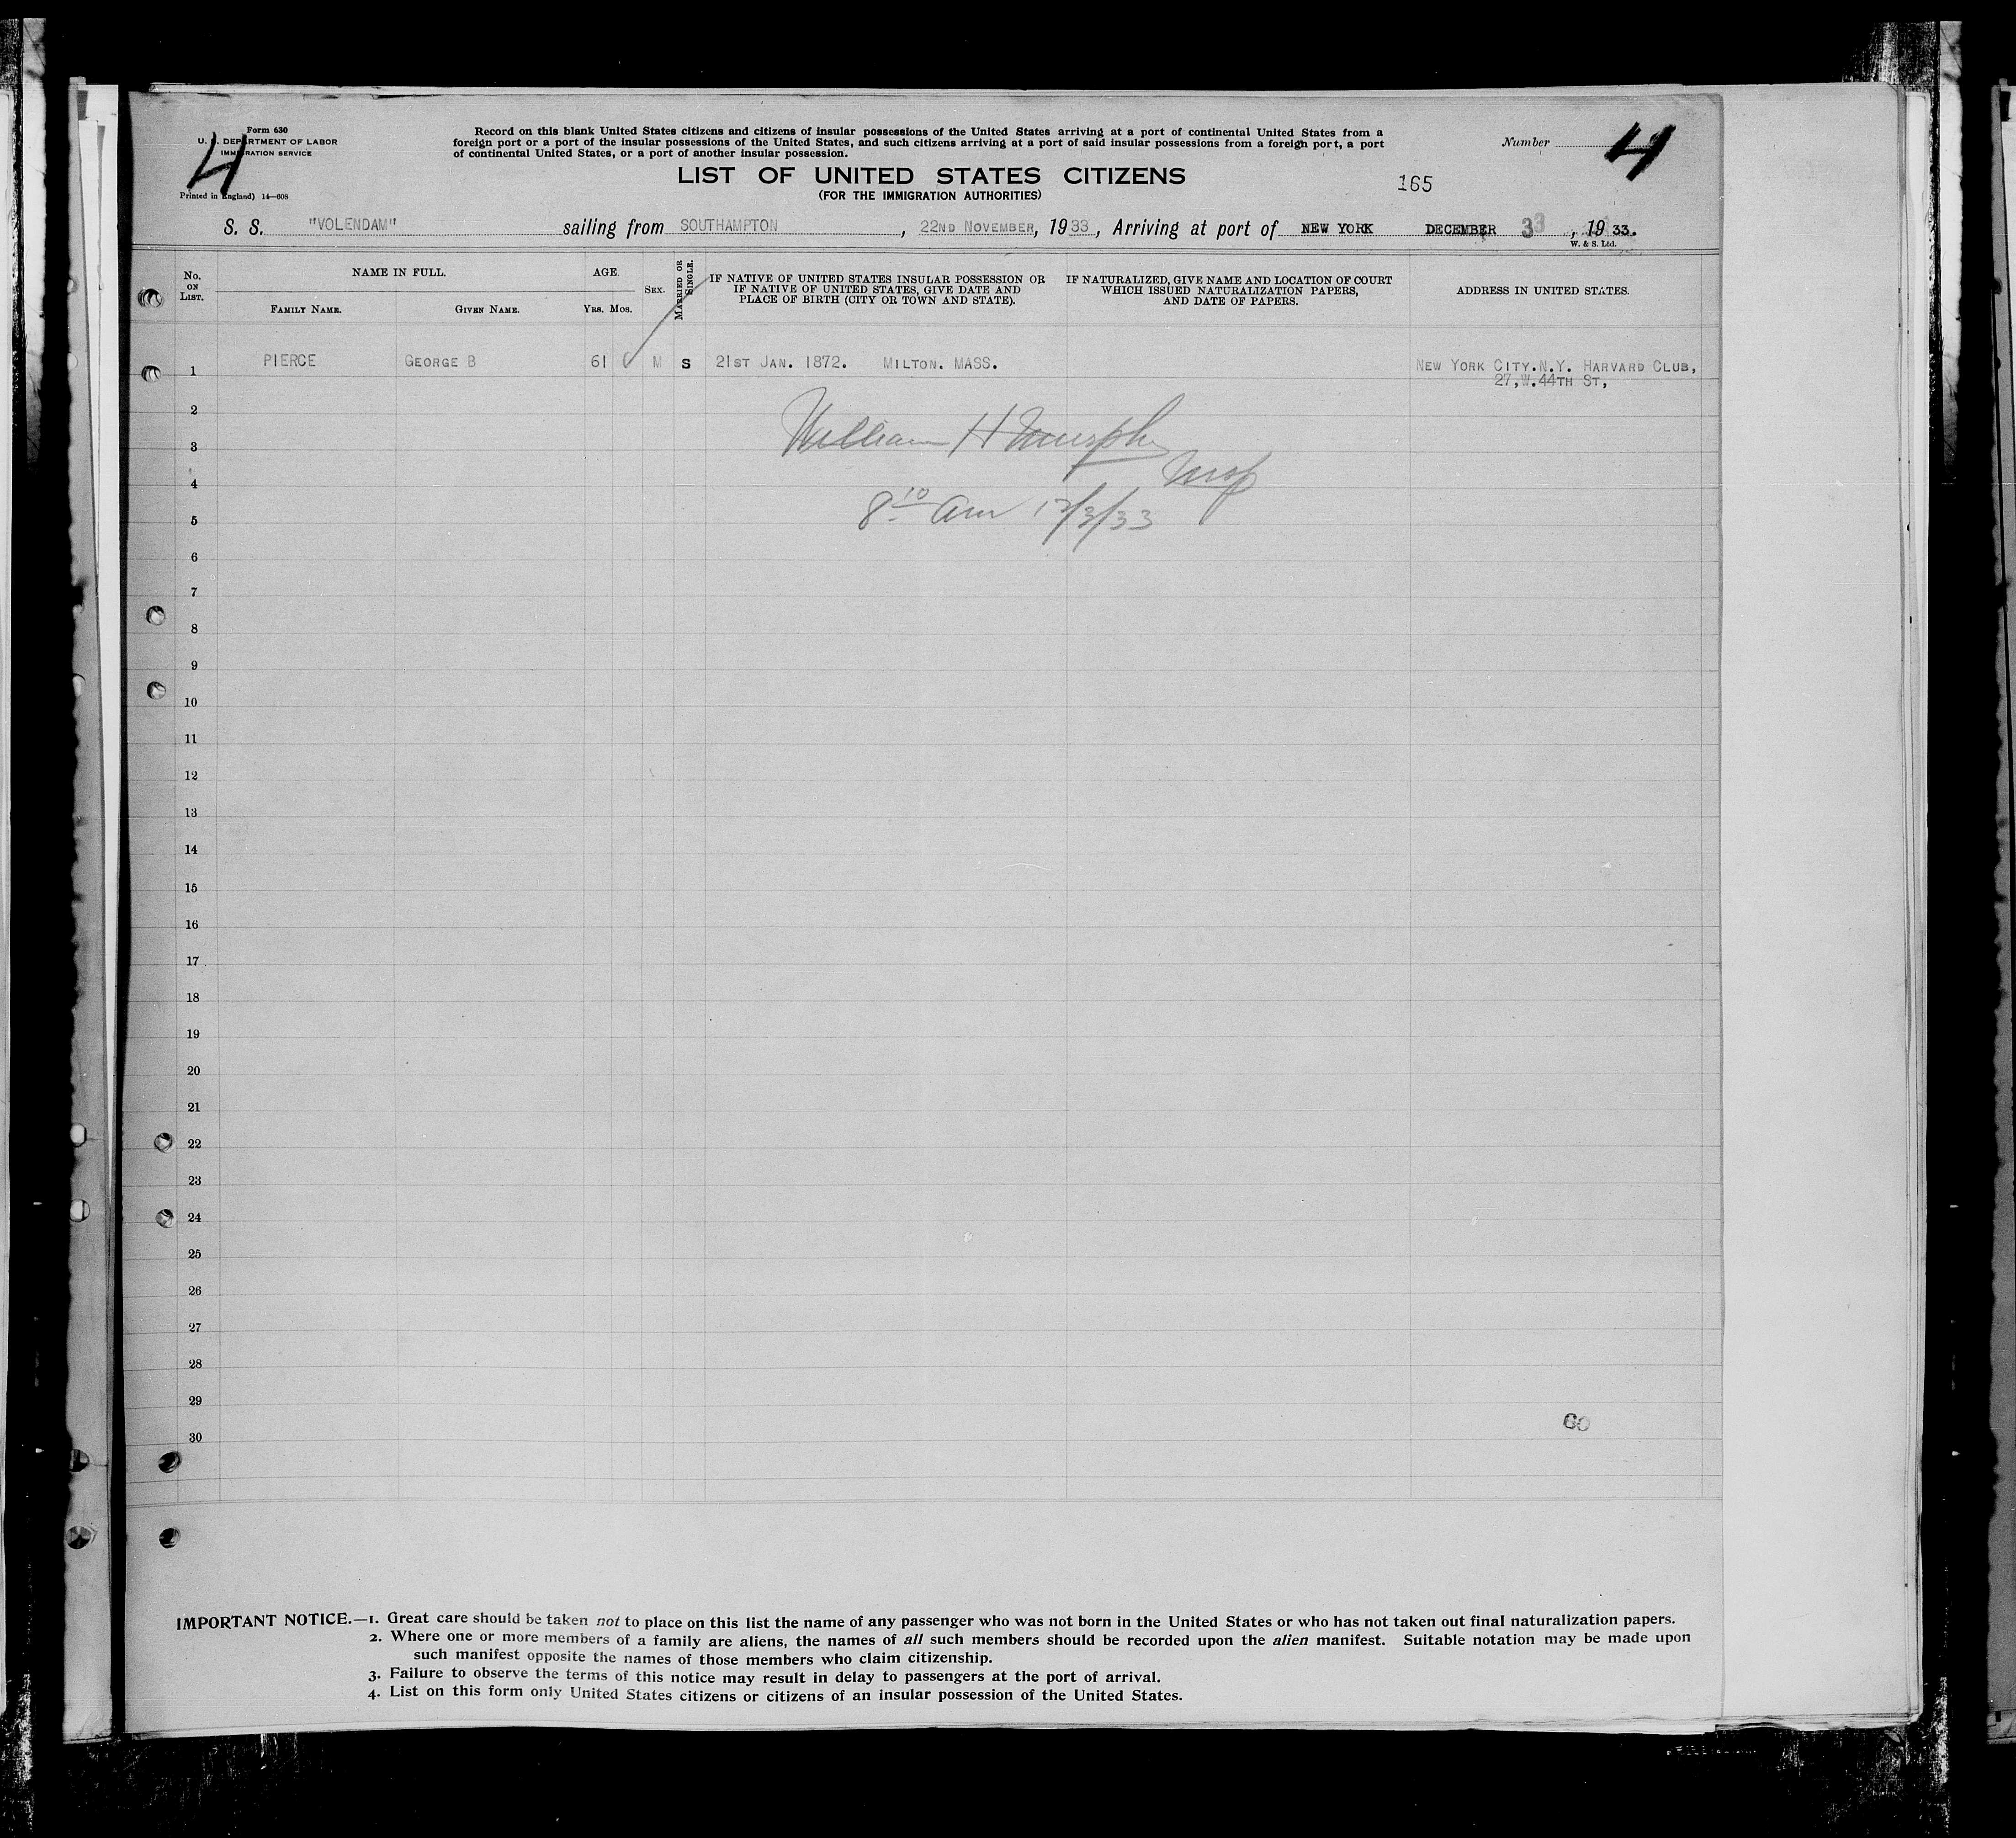 Form 630
U. S. DEPARTMENT OF LABOR
IMMIGRATION SERVICE
Printed in England) 14—608
4
Record on this blank United States citizens and citizens of insular possessions of the United States arriving at a port of continental United States from a
foreign port or a port of the insular possessions of the United States, and such citizens arriving at a port of said insular possessions from a foreign port, a port
of continental United States, or a port of another insular possession.
Number 4
LIST OF UNITED STATES CITIZENS
(FOR THE IMMIGRATION AUTHORITIES)
165
S. S. "VOLENDAM" sailing from SOUTHAMPTON, 22ND NOVEMBER, 1933, Arriving at port of NEW YORK DECEMBER 3, 1933.
W. & S. Ltd.
No. ON LIST.
NAME IN FULL.
FAMILY NAME. GIVEN NAME.
AGE.
YRS. MOS.
SEX.
MARRIED OR SINGLE.
IF NATIVE OF UNITED STATES INSULAR POSSESSION OR
IF NATIVE OF UNITED STATES, GIVE DATE AND
PLACE OF BIRTH (CITY OR TOWN AND STATE).
IF NATURALIZED, GIVE NAME AND LOCATION OF COURT
WHICH ISSUED NATURALIZATION PAPERS,
AND DATE OF PAPERS.
ADDRESS IN UNITED STATES.
1 PIERCE GEORGE B 61 M S 21ST JAN. 1872. MILTON. MASS. NEW YORK CITY.N.Y. HARVARD CLUB,
27,W.44TH ST,
2
William H Murphy
3
4
8 10 am 12/3/33
5
6
7
8
9
10
11
12
13
14
15
16
17
18
19
20
21
22
23
24
25
26
27
28
29
60
30
IMPORTANT NOTICE.—1. Great care should be taken not to place on this list the name of any passenger who was not born in the United States or who has not taken out final naturalization papers.
2. Where one or more members of a family are aliens, the names of all such members should be recorded upon the alien manifest. Suitable notation may be made upon
such manifest opposite the names of those members who claim citizenship.
3. Failure to observe the terms of this notice may result in delay to passengers at the port of arrival.
4. List on this form only United States citizens or citizens of an insular possession of the United States.